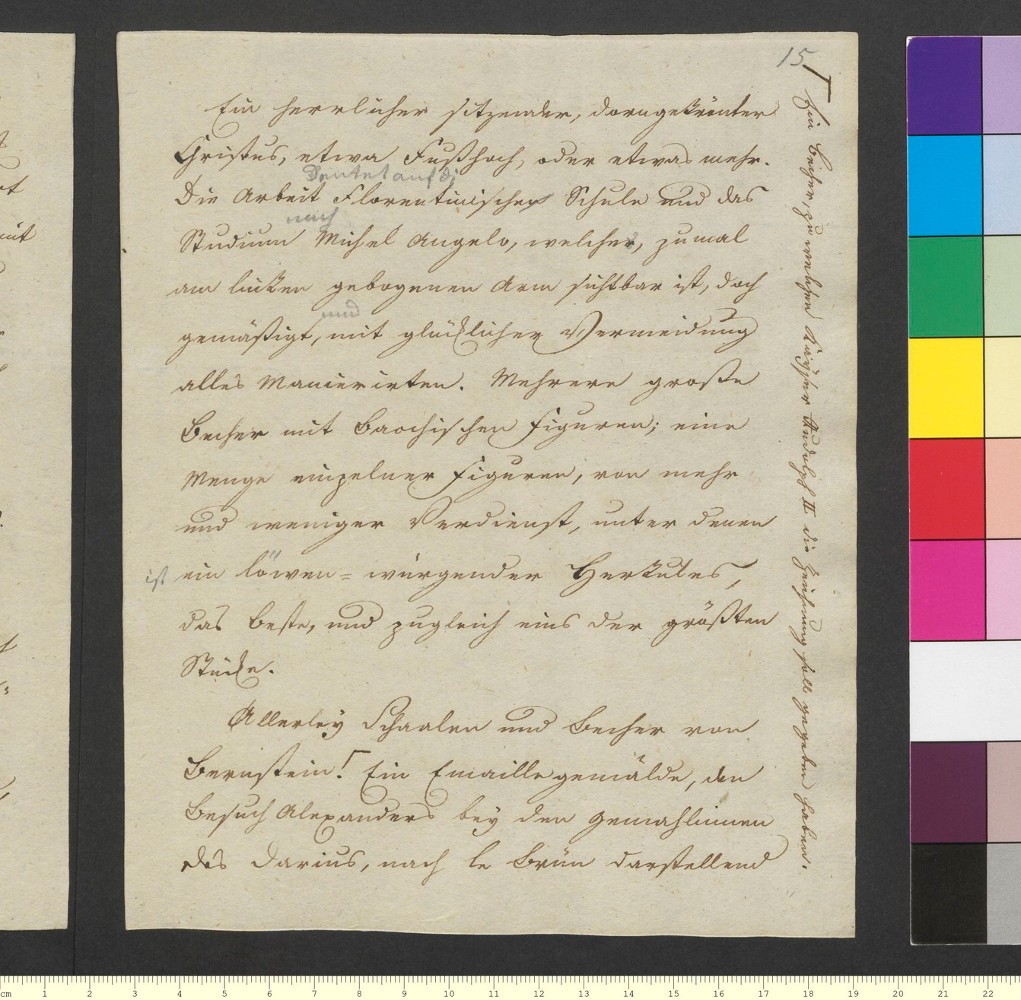 15
Ein herrlicher sitzender, dorngekrönter
Christus, etwa Fußhoch, oder etwas mehr.
deutet auf di
Die Arbeit Florentinischer Schule und das
nach
Studium Michel Angelo, welcher, zumal
am linken gebogenen Arm sichtbar ist, doch
und
gemäßigt, mit glücklicher Vermeidung
alles Manierirten. Mehrere große
Becher mit Bacchischen Figuren; eine
Menge einzelner Figuren, von mehr
und weniger Verdienst, unter denen
ist ein löwen=würgender Herkules,
das beste, und zugleich eins der größten
Stücke.
Allerley Schaalen und Becher von
Bernstein! Ein Emaillegemälde, den
Besuch Alexanders bey den Gemahlinnen
des Darius, nach le Brün darstellend
Ein Becher, zu welchen Kayser Rudolph II die Zeichnung soll gegeben haben.